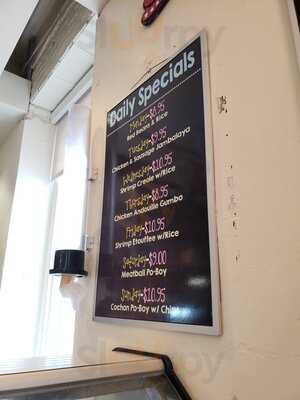 Daily Specials
Monday-$8.95
Red Beans & Rice
Tuesday-$9.95
Chicken & Sausage Jambalaya
Wednesday-$10.95
Shrimp Creole w/Rice
Thursday-$8.95
Chicken Andouille Gumbo
Friday-$10.95
Shrimp Etouffee w/Rice
Saturday-$9.00
Meatball Po-Boy
Sunday-$10.95
Cochan Po-Boy w/ Chips